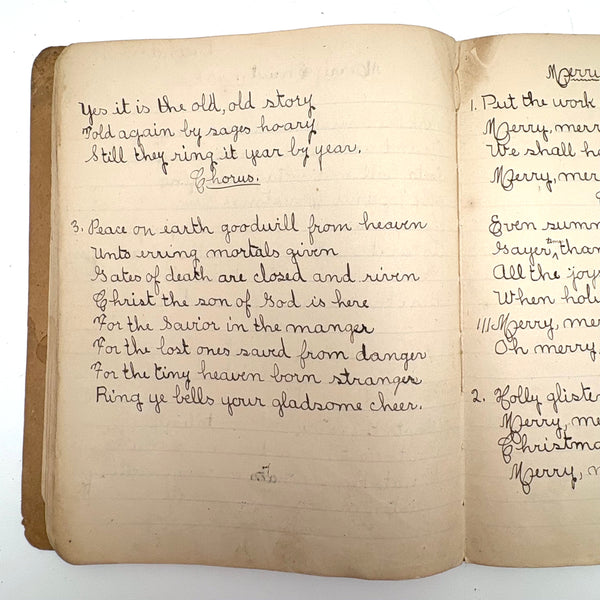 Yes it is the old, old story
Told again by sages hoary
Still they ring it year by year.
Chorus.
3. Peace on earth goodwill from heaven
Unto erring mortals given
Gates of death are closed and riven
Christ the son of God is here
For the Savior in the manger
For the lost ones saved from danger
For the tiny heaven born stranger
Ring ye bells your gladsome cheer.
Merry
1. Put the work
Merry, merr
We shall ha
Merry, mer
Even summ
Gayer time than
All the joy
When holi
Merry, me
Oh merry,
2. Holly gliste
Merry, me
Christma
Merry, m